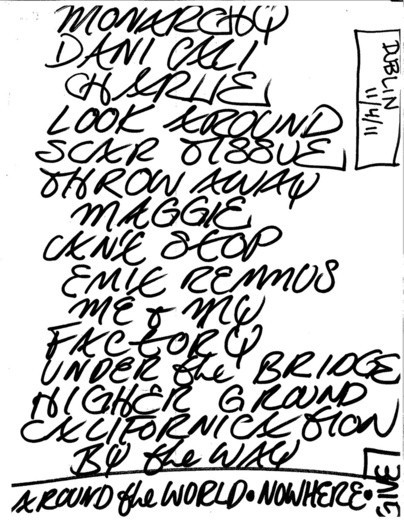 MONARCHY
DANI CALI
CHARLIE
LOOK AROUND
SCAR TISSUE
THROW AWAY
MAGGIE
CAN'T STOP
EMIT REMMUS
ME + MY
FACTORY
UNDER the BRIDGE
HIGHER GROUND
CALIFORNICATION
BY the WAY
AROUND the WORLD • NOWHERE •
GIVE
DUBLIN
11/4/11